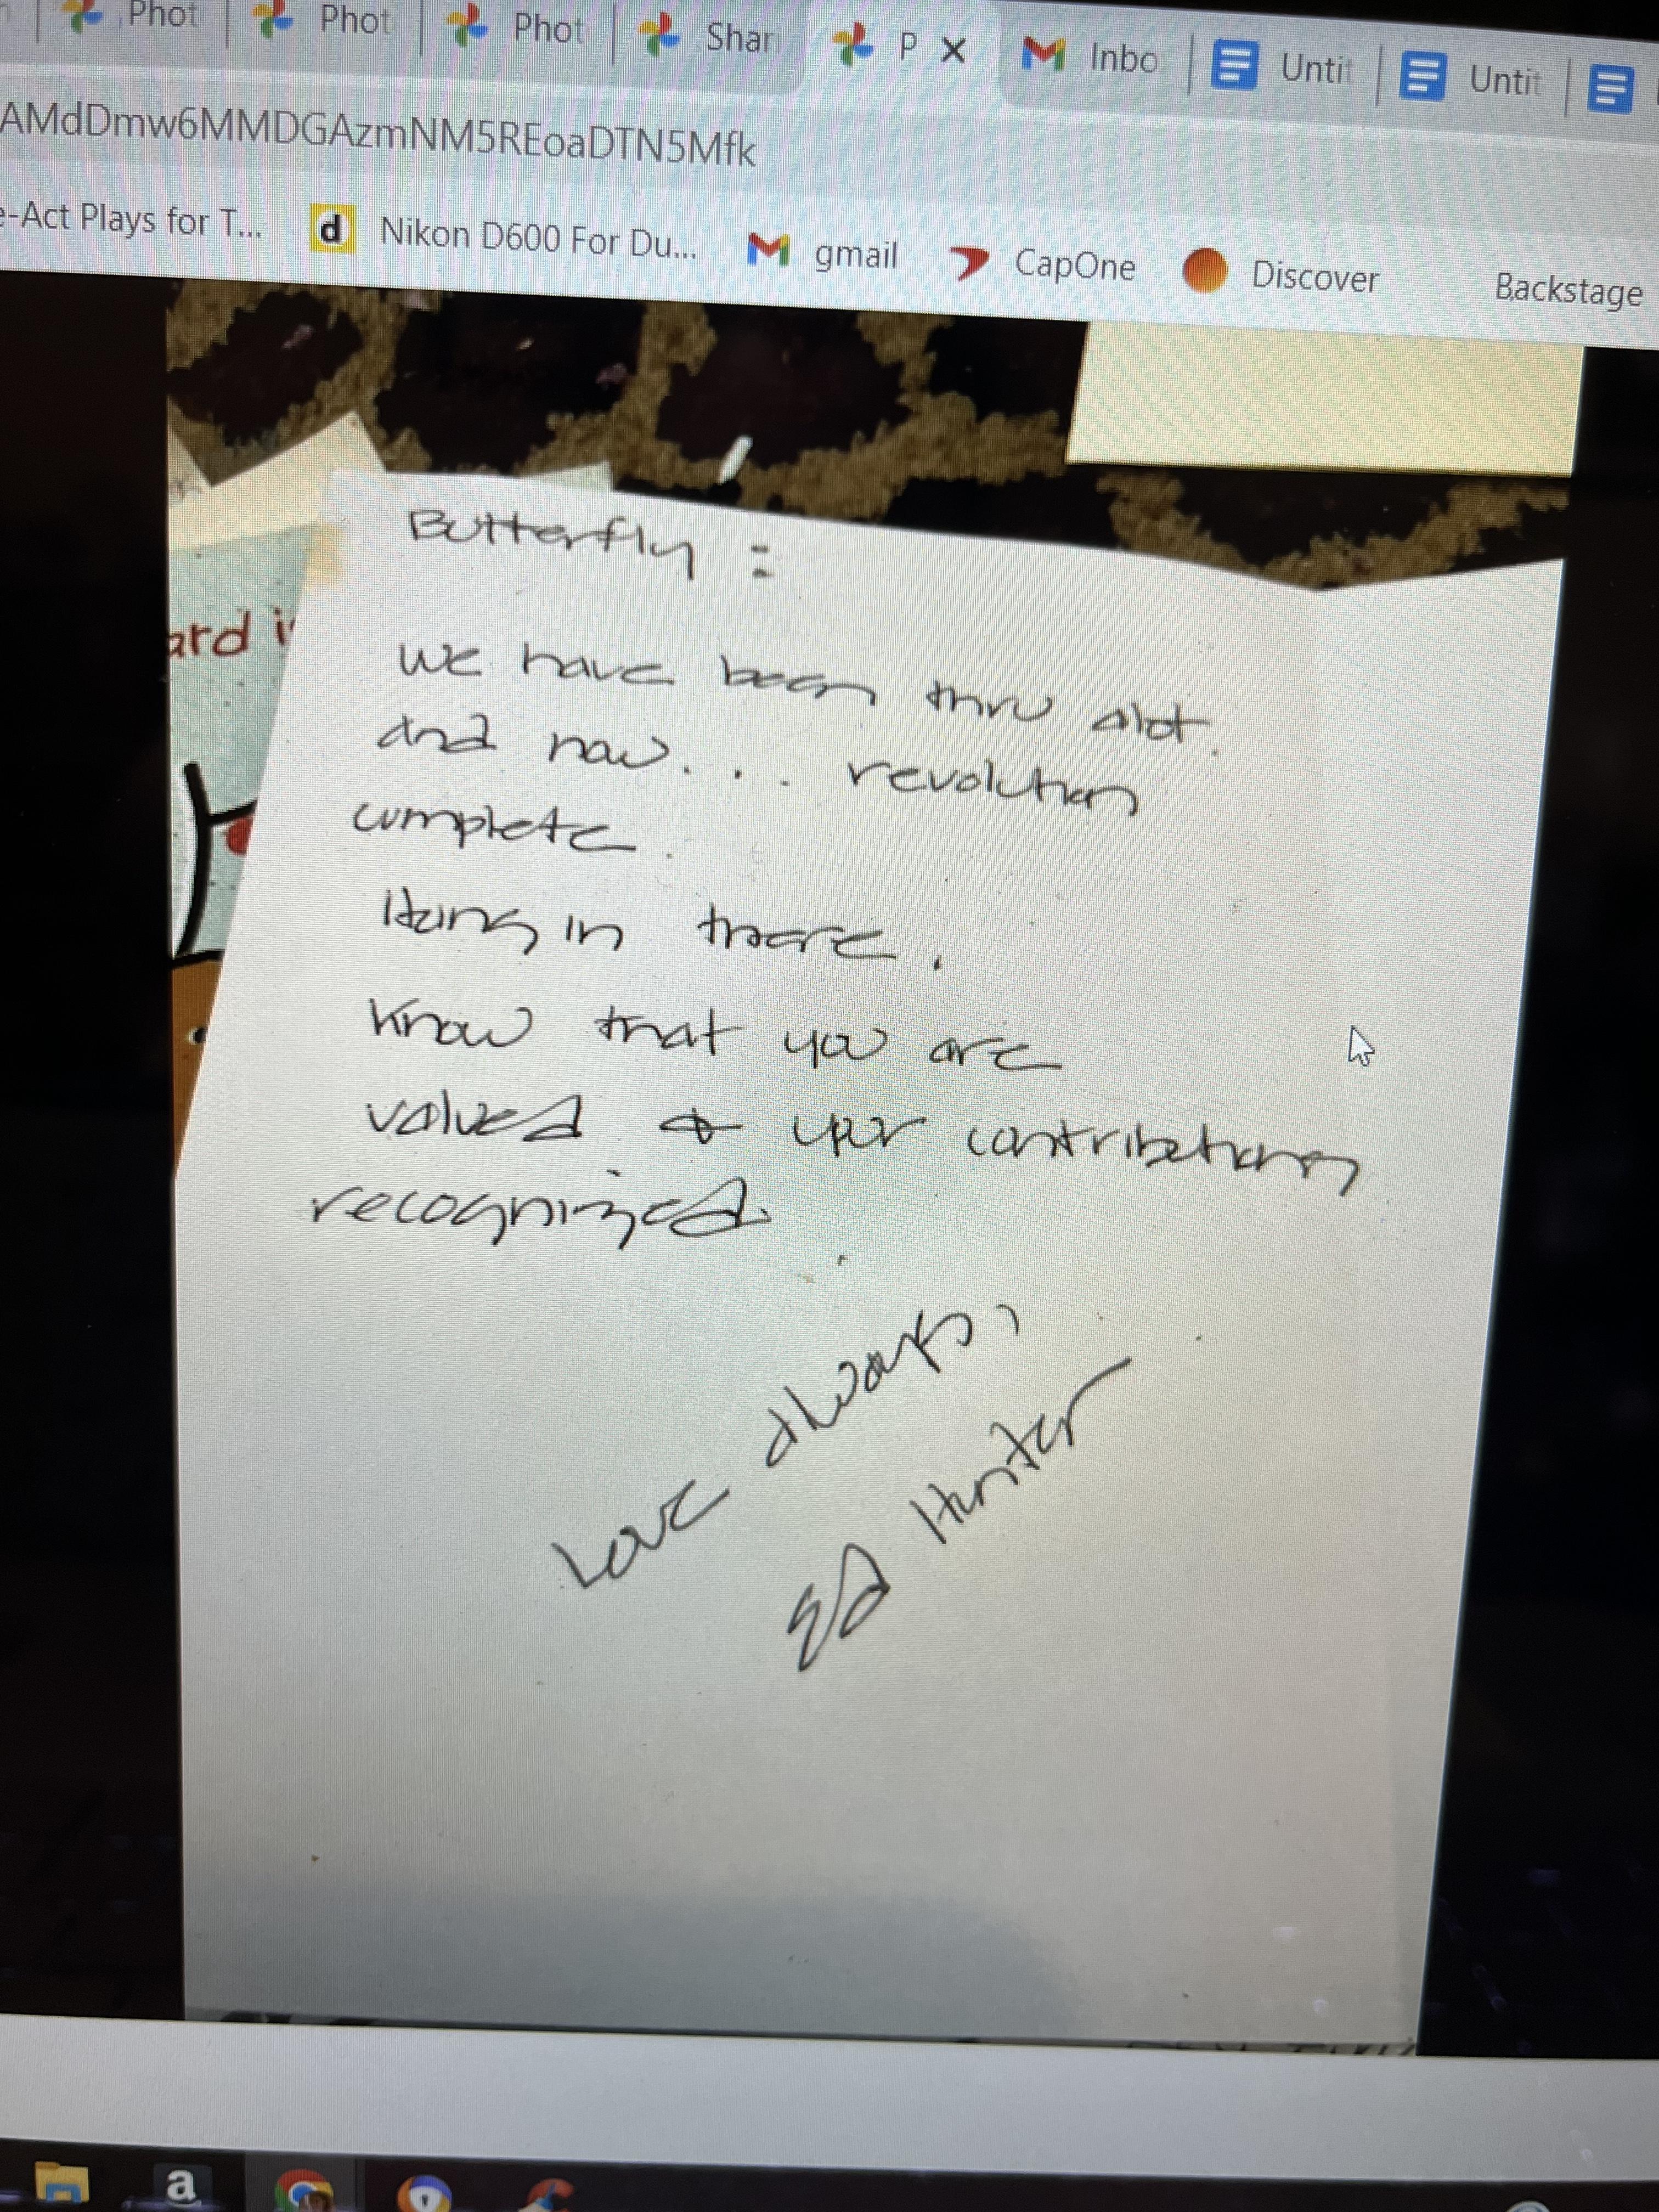 Phot
Phot
Phot
Shar
P
Inbo
Untit
Untit
AMdDmw6MMDGAzmNM5REoaDTN5Mfk
e-Act Plays for T...
d
Nikon D600 For Du...
gmail
CapOne
Discover
Backstage
Butterfly :
ard i
We have been thru alot.
And now... revolution
complete.
Hang in there.
Know that you are
valued & your contributions
recognized.
Love Always,
Ed Hunter
a